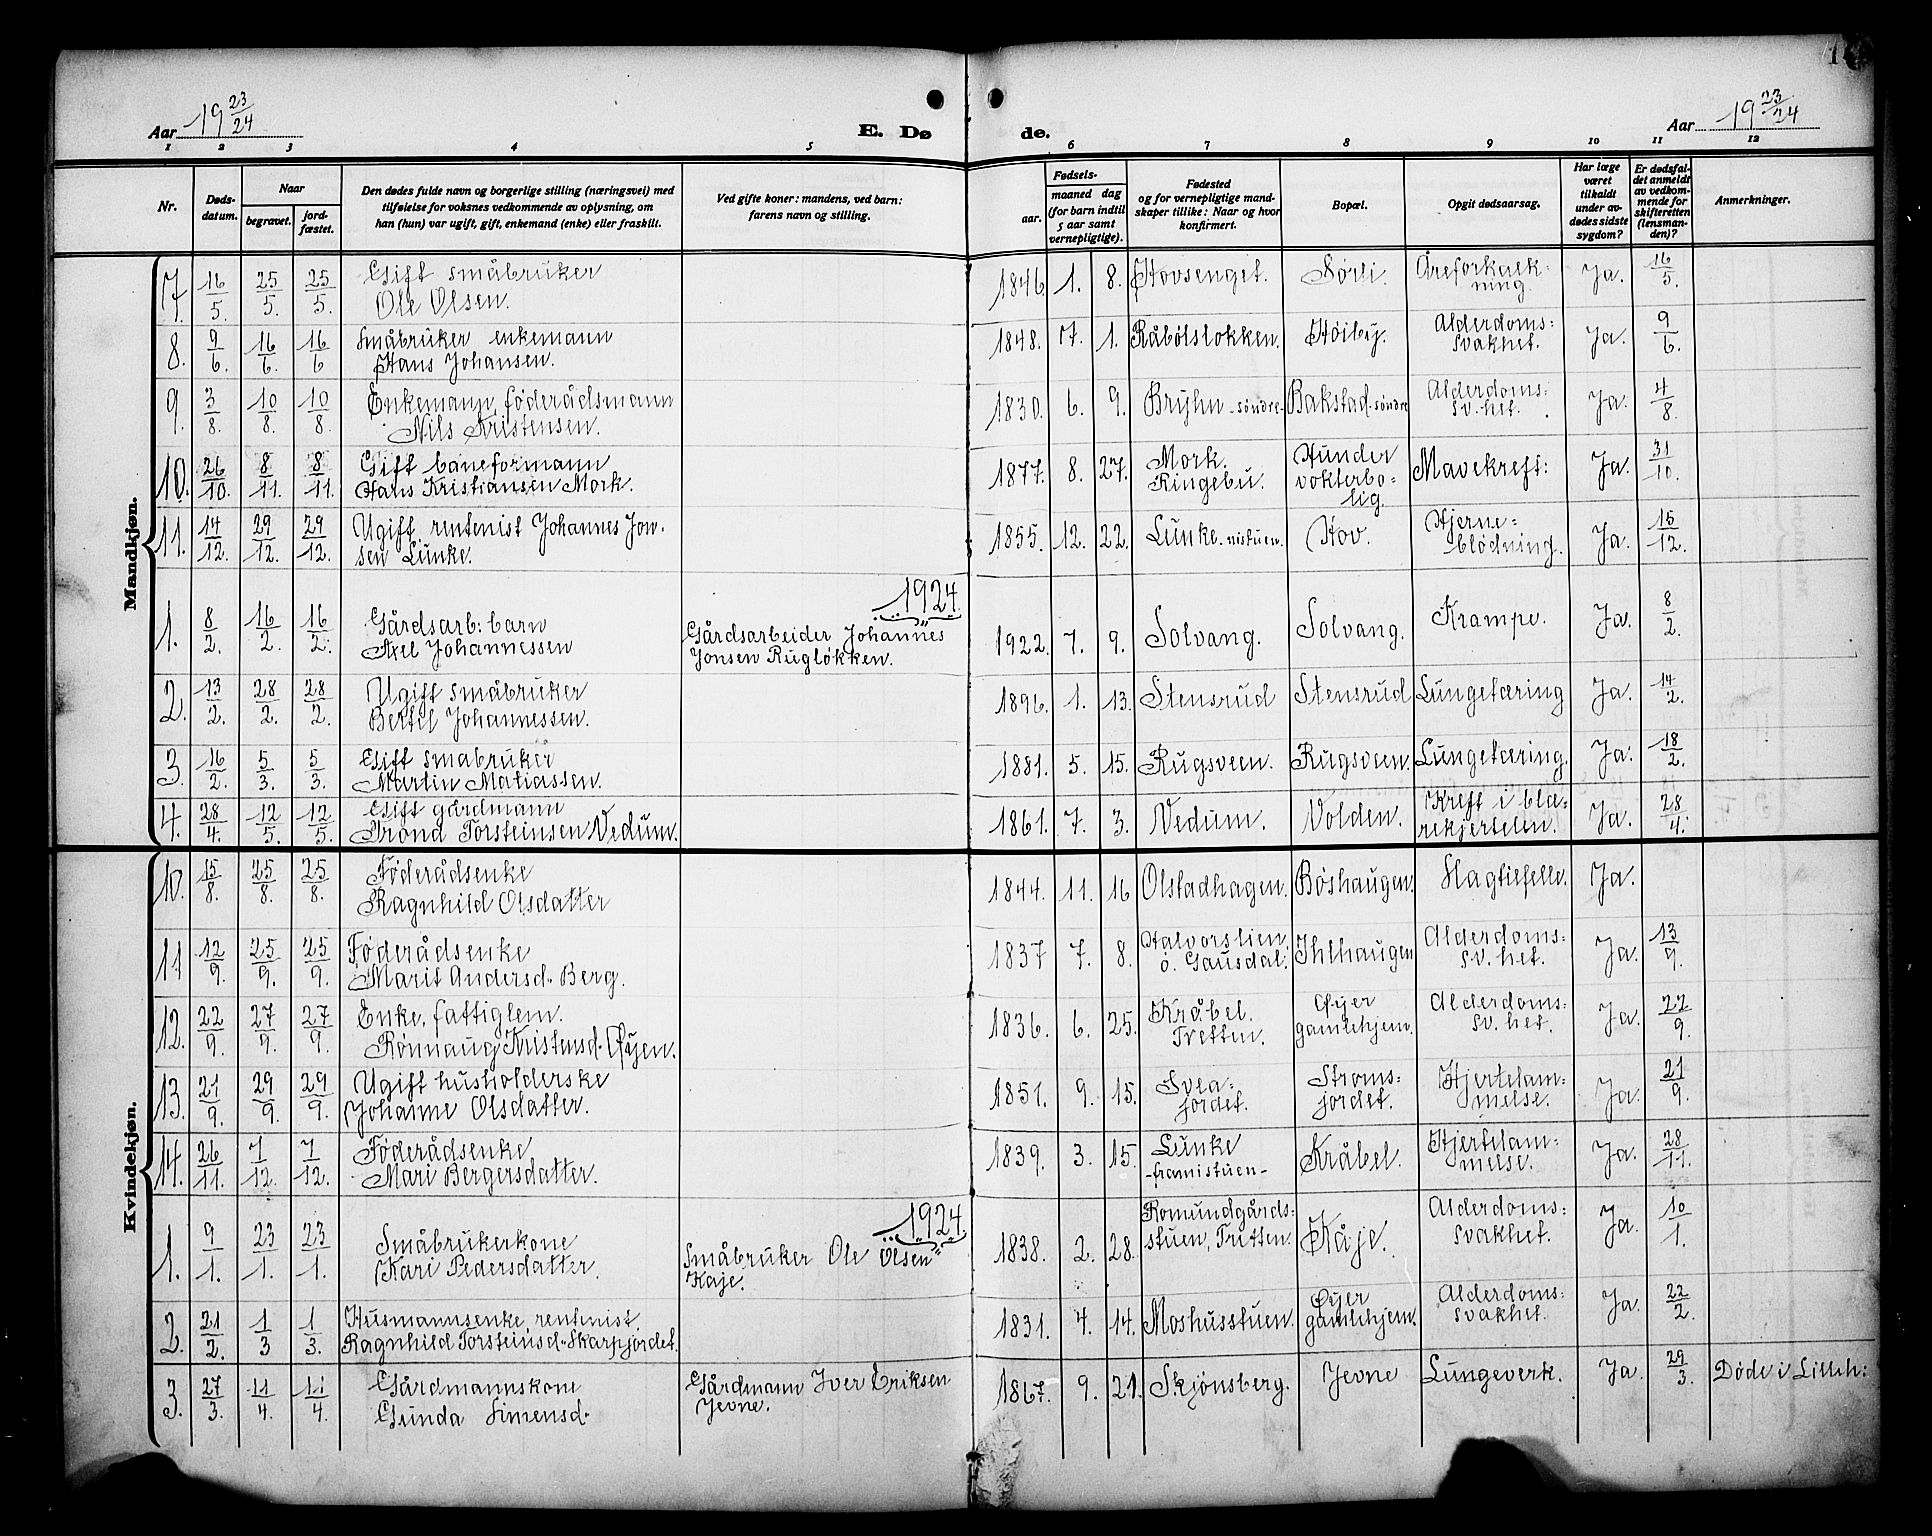 Aar 19 23/24
E. Dø
de.
Aar 19 23/24
1 2 3 4 5 6 7 8 9 10 11 12
Nr.
Døds-
datum.
Naar
begravet.
jord-
fæstet.
Den dødes fulde navn og borgerlige stilling (næringsvei) med
tilføielse for voksnes vedkommende av oplysning, om
han (hun) var ugift, gift, enkemand (enke) eller fraskilt.
Ved gifte koner: mandens, ved barn:
farens navn og stilling.
Fødsels-
aar.
maaned dag
(for barn indtil
5 aar samt
vernepligtige).
Fødested
og for vernepligtige mand-
skaper tillike: Naar og hvor
konfirmert.
Bopæl.
Opgit dødsaarsag.
Har læge
været
tilkaldt
under av-
dødes sidste
sygdom?
Er dødsfal-
det anmeldt
av vedkom-
mende for
skifteretten
(lensman-
den)?
Anmerkninger.
Mandkjøn.
7. 16/5. 25/5. 25/5. Gift småbruker
Ole Olsen. 1846. 1. 8. Hovsenget. Sørli. Åreforkalk-
ning. Ja. 16/5.
8. 9/6. 16/6. 16/6 Småbruker enkemann
Hans Johansen. 1848. 7. 1. Råbølsløkken. Høiby. Alderdoms:
svakhet. Ja. 9/6.
9. 3/8. 10/8. 10/8 Enkemann, føderådsmann
Nils Kristensen. 1830. 6. 9. Bryhn -søndre- Bakstad-søndre Alderdoms:
sv. het. Ja. 4/8
10. 26/10. 8/11. 8/11. Gift baneformann
Hans Kristiansen Mork. 1877. 8. 27. Mork.
Ringebu. Hunder
vokterbo-
lig. Mavekreft: Ja. 31/10.
11. 14/12. 29/12. 29/12. Ugift rentenist Johannes Jon-
sen Lunke. 1855. 12. 22. Lunke. nistuen. Hov. Hjerne=
blødning. Ja. 15/12.
1924.
1. 8/2. 16/2. 16/2. Gårdsarb: barn
Axel Johannessen Gårdsarbeider Johannes
Jonsen Rugløkken. 1922. 7. 9. Solvang. Solvang. Krampe. Ja. 8/2.
2. 13/2. 28/2. 28/2. Ugift småbruker
Bertel Johannessen. 1896. 1. 13. Stensrud Stensrud Lungetæring Ja. 14/2.
3. 16/2. 5/3. 5/3. Gift småbruker
Martin Matiassen. 1881. 5. 15. Rugsveen. Rugsveen. Lungetæring. Ja. 18/2.
4. 28/4. 12/5. 12/5. Gift gårdmann
Trond Torsteinsen Vedum. 1861. 7. 3. Vedum. Volden. Kreft i blæ=
rekjertelen. Ja. 28/4.
Kvindekjøn.
10. 15/8. 25/8. 25/8. Føderådsenke
Ragnhild Olsdatter 1844. 11. 16 Olstadhagen. Bøshaugen. Slagtilfelle. Ja.
11 12/9. 25/9. 25/9. Føderådsenke
Marit Andersd. Berg. 1837 7. 8. Halvorslien,
ø. Gausdal. Ihlhaugen Alderdoms:
sv. het. Ja. 13/9.
12. 22/9. 27/9. 27/9. Enke, fattiglem.
Rønnaug Kristensd. Øyen. 1836. 6. 25. Kråbel.
Tretten. Øyer
gamlehjem. Alderdoms:
sv. het. Ja. 22/9.
13. 21/9. 29/9. 29/9. Ugift husholderske
Johanne Olsdatter. 1851. 9. 15. Svea-
jordet. Strøms:
jordet. Hjertelam-
melse. Ja. 21/9.
14. 26/11. 7/12. 7/12. Føderådsenke
Mari Bergersdatter. 1839. 3. 15. Lunke
-framistuen- Kråbel. Hjertelam-
melse. Ja. 28/11.
1924.
1. 9/1. 23/1. 23/1. Småbrukerkone
Kari Pedersdatter. Småbruker Ole Olsen
Kåje. 1838. 2. 28. Romundgårds:
stuen, Tretten. Kåje. Alderdoms:
svakhet. Ja. 10/1.
2. 21/2. 1/3 1/3. Husmannsenke, rentenist.
Ragnhild Torsteinsd. Skarpjordet. 1831. 4. 14. Moshusstuen. Øyer
gamlehjem. Alderdoms:
svakhet. Ja. 22/2
3. 27/3. 11/4. 11/4 Gårdmannskone
Gunda Simensd. Gårdmann Iver Eriksen
Jevne. 1867. 9. 21. Skjønsberg. Jevne Lungeverk. Ja. 29/3. Døde i Lilleh: